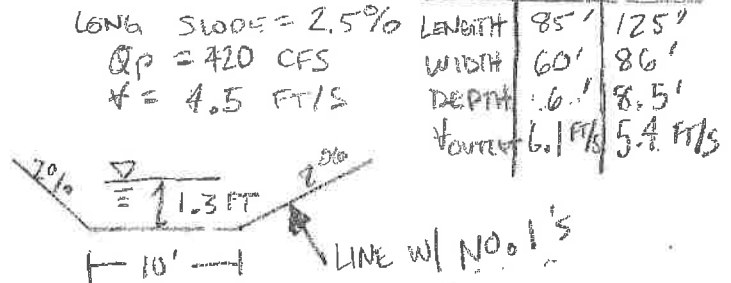 LONG SLOPE = 2.5%
Qp = 420 CFS
V = 4.5 FT/S
LENGTH 85' 125'
WIDTH 60' 86'
DEPTH 6.' 8.5'
VOUTLET 6.1 FT/S 5.4 FT/S
2% 2%
1.3 FT
10'
LINE W/ NO. 1'S